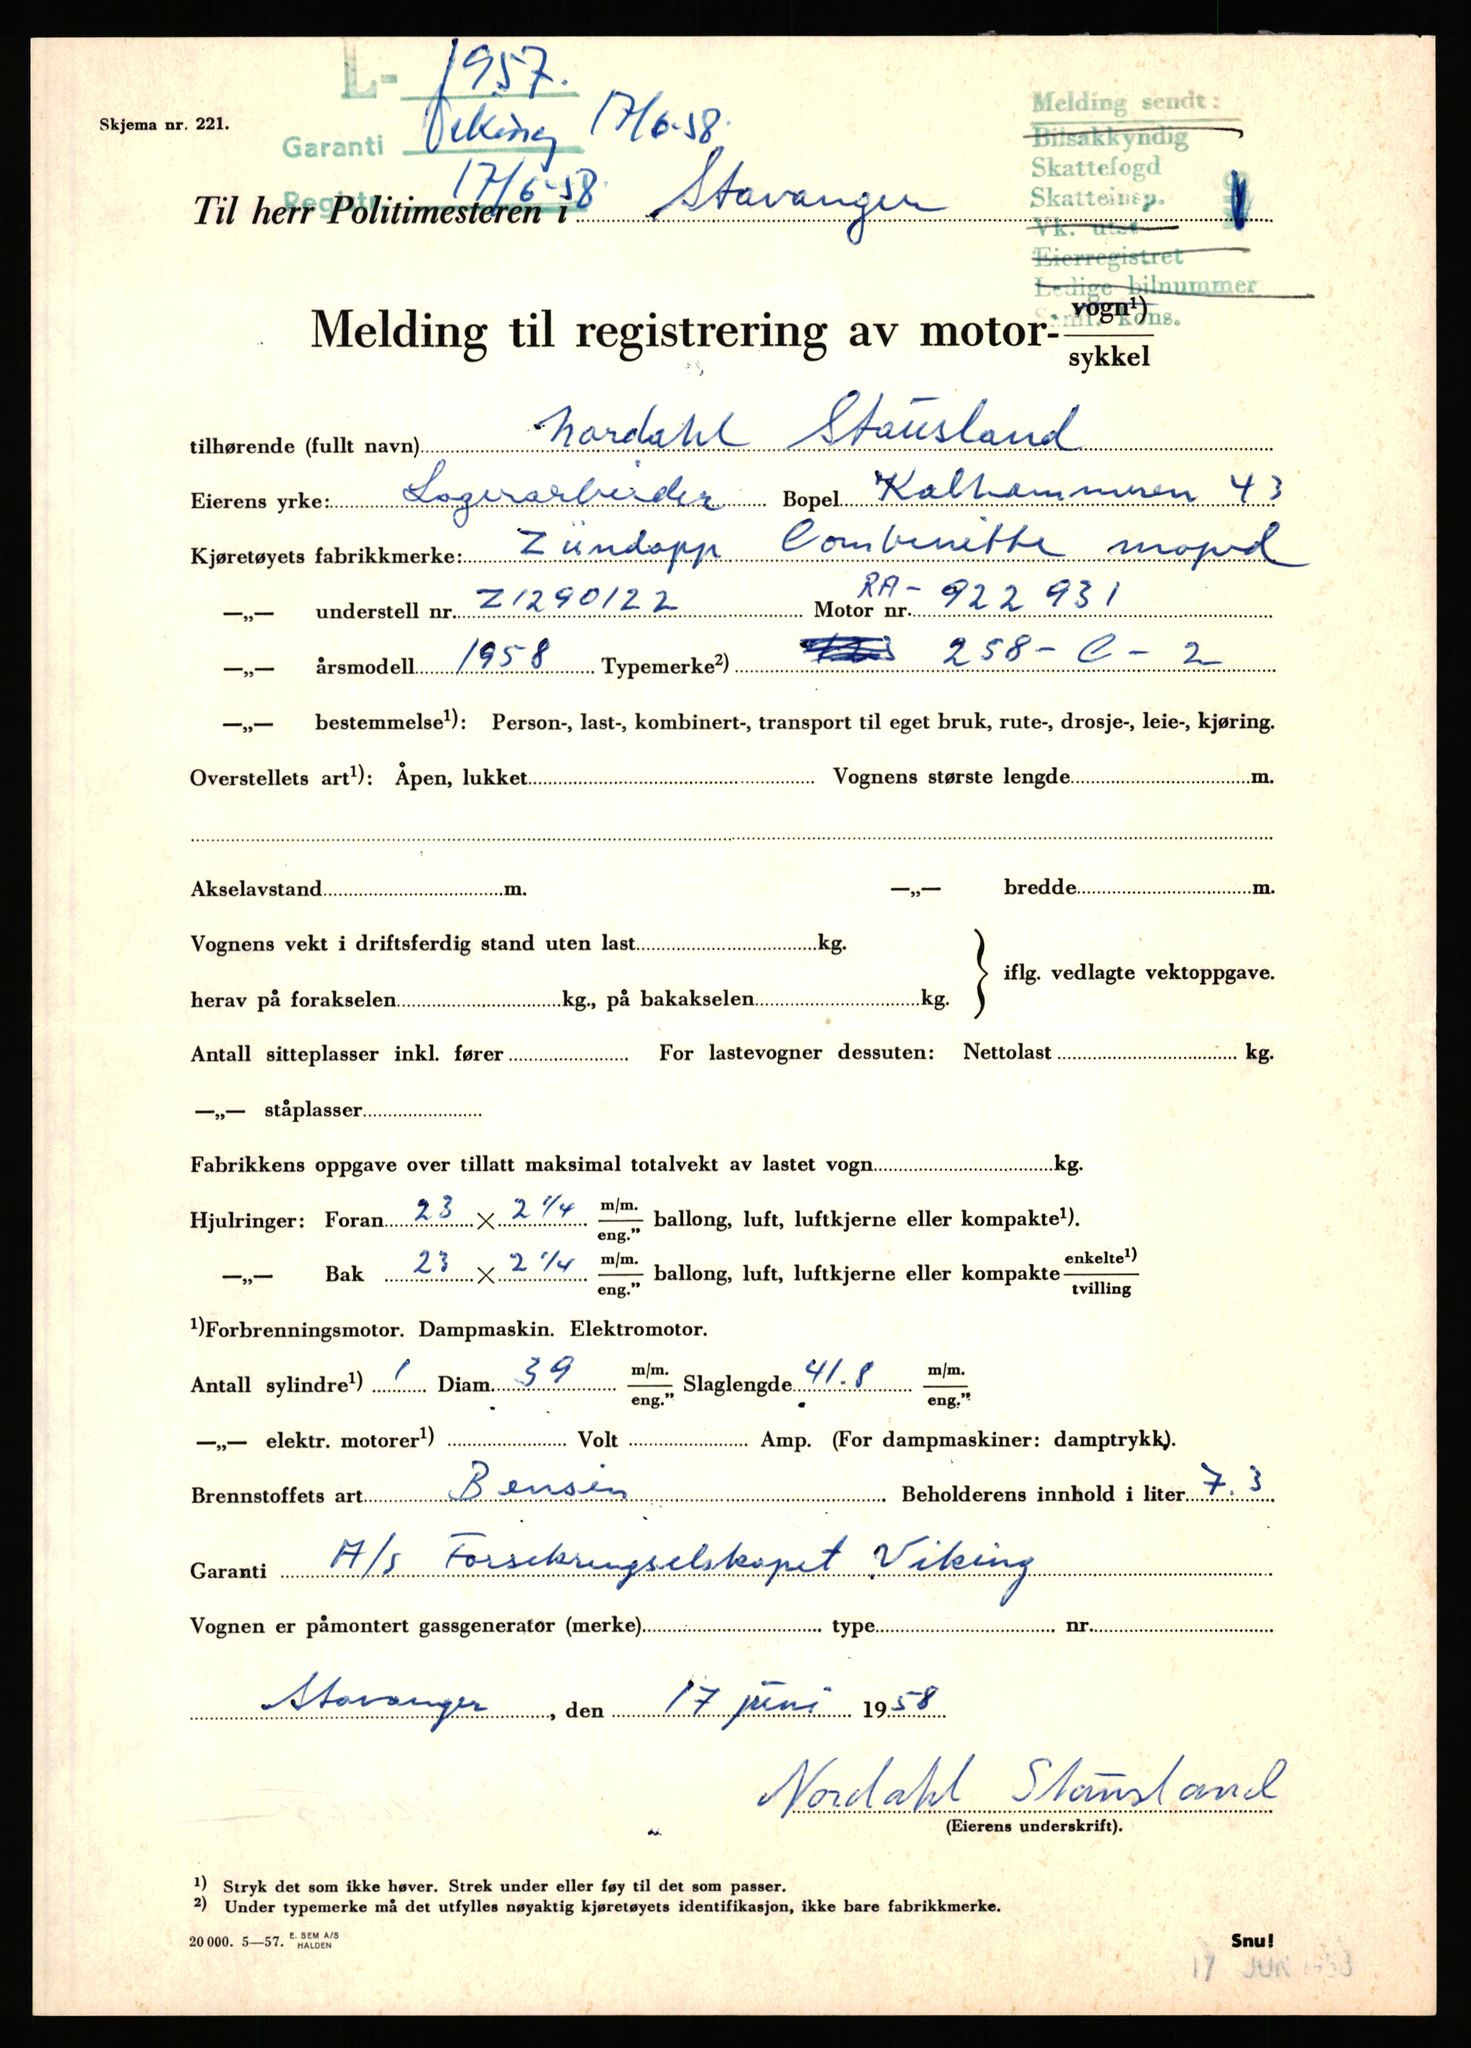 L- 1957.
Skjema nr. 221.
Garanti Viking 17/6-58.
17/6-58.
Melding sendt:
Bilsakkyndig
Skattefogd
Skatteinsp.
Vk. utst
Eierregistret
Ledige bilnummer
kons.
Til herr Politimesteren i Stavanger
Melding til registrering av motor- vogn¹) / sykkel
tilhørende (fullt navn) Nordahl Stausland
Eierens yrke: Lagerarbeider Bopel Kalhammeren 43
Kjøretøyets fabrikkmerke: Zündapp Combinette moped
—„— understell nr. Z1290122 Motor nr. RA- 922 931
—„— årsmodell 1958 Typemerke²) 258-C-2
—„— bestemmelse¹): Person-, last-, kombinert-, transport til eget bruk, rute-, drosje-, leie-, kjøring.
Overstellets art¹): Åpen, lukket Vognens største lengde m.
Akselavstand m. —„— bredde m.
Vognens vekt i driftsferdig stand uten last kg.
iflg. vedlagte vektoppgave.
herav på forakselen kg., på bakakselen kg.
Antall sitteplasser inkl. fører For lastevogner dessuten: Nettolast kg.
—„— ståplasser
Fabrikkens oppgave over tillatt maksimal totalvekt av lastet vogn kg.
Hjulringer: Foran 23 × 2 1/4 m/m. / eng.” ballong, luft, luftkjerne eller kompakte¹).
—„— Bak 23 × 2 1/4 m/m. / eng.” ballong, luft, luftkjerne eller kompakte enkelte¹) / tvilling
¹)Forbrenningsmotor. Dampmaskin. Elektromotor.
Antall sylindre¹) 1 Diam. 39 m/m. / eng.” Slaglengde 41.8 m/m. / eng.”
—„— elektr. motorer¹) Volt Amp. (For dampmaskiner: damptrykk).
Brennstoffets art Bensin Beholderens innhold i liter 7.3
Garanti A/s Forsikringselskapet Viking
Vognen er påmontert gassgenerator (merke) type nr.
Stavanger, den 17 juni 1958
Nordahl Stausland
(Eierens underskrift).
¹) Stryk det som ikke høver. Strek under eller føy til det som passer.
²) Under typemerke må det utfylles nøyaktig kjøretøyets identifikasjon, ikke bare fabrikkmerke.
20 000. 5—57. E. SEM A/S HALDEN
Snu!
17 JUN 1958